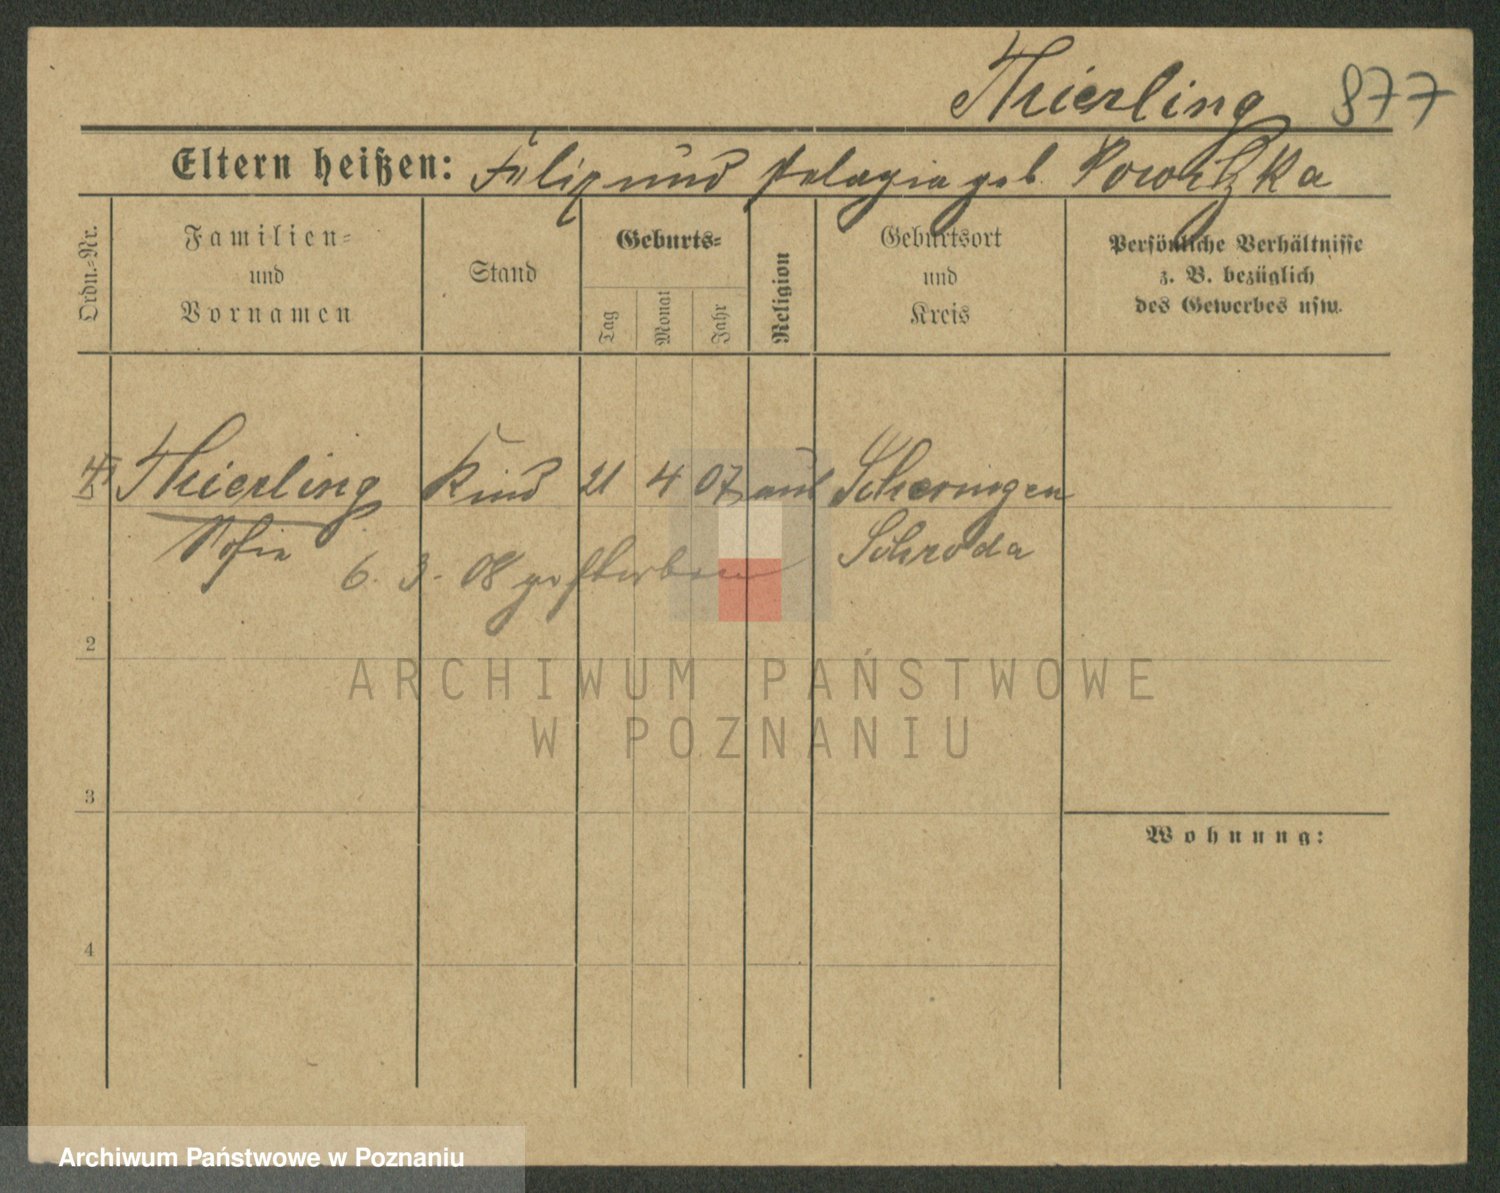 Thierling 877
Eltern heißen: Felix und Pelagia geb.
Ordn.-Nr.
Familien-
und
Vornamen
Stand
Geburts-
Tag
Monat
Jahr
Religion
Geburtsort
und
Kreis
Persönliche Verhältnisse
z. B. bezüglich
des Gewerbes usw.
Thierling Kind 21 4 07
Schroda
6. 3. 08 gestorben
2
3
Wohnung:
4
ARCHIWUM PAŃSTWOWE
W POZNANIU
Archiwum Państwowe w Poznaniu